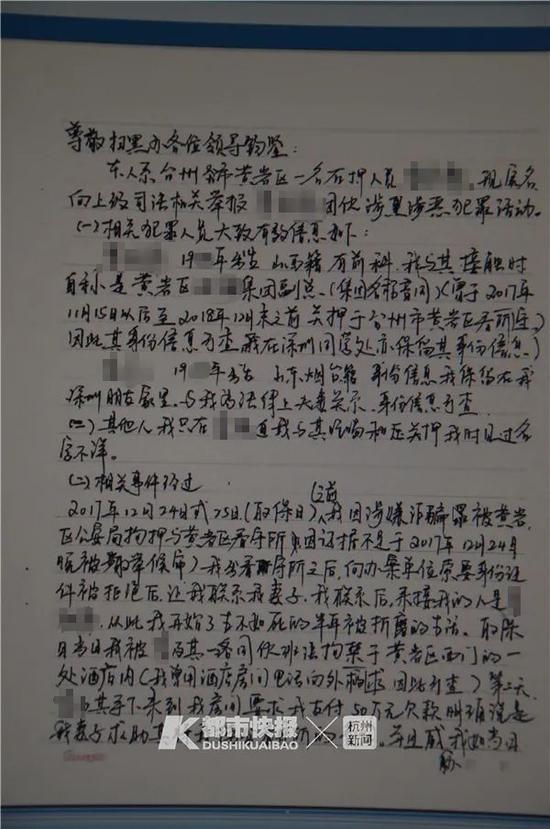 尊敬扫黑办各位领导钧鉴：
本人系台州市黄岩区一名在押人员 现实名
向上级司法相关举报 团伙涉黑涉恶犯罪活动。
(一)相关犯罪人员大致有效信息如下：
19 年出生 山西籍 有前科 我与其接触时
自称是黄岩区 集团副总.(集团名称 )(曾于2017年
11月15日以后至2018年12月末之前关押于台州市黄岩区看守所)
因此其身份信息可查 我在深圳 处亦保留其身份信息)
19 年出生 山东烟台籍 身份信息我保留在我
深圳朋友家里.与我为法律上夫妻关系.身份信息可查
(三)其他人我只在 与我与其 和在关押我时见过名
字不详。
(二)相关事件经过
2017年12月24日或25日(取保日)前 我因涉嫌诈骗罪被黄岩
区公安局拘押与黄岩区看守所(因证据不足于2017年12月24号
晚被取保候审)我出看守所之后，向办案单位索要身份证
件被拒绝后，让我联系我妻子.我联系后，来接我的人是
.从此我开始了生不如死的半年被折磨的生活. 取保
日当日我被 及其一路同伙非法拘禁于黄岩区西门的一
处酒店内(我曾用酒店房间电话向外求 因此可查)第二天
与其手下来到我房间 要求我支付50万元欠款 明确说是
我妻子求助 。并且威 我如当日
胁
K都市快报 杭州新闻
DUSHIKUAIBAO